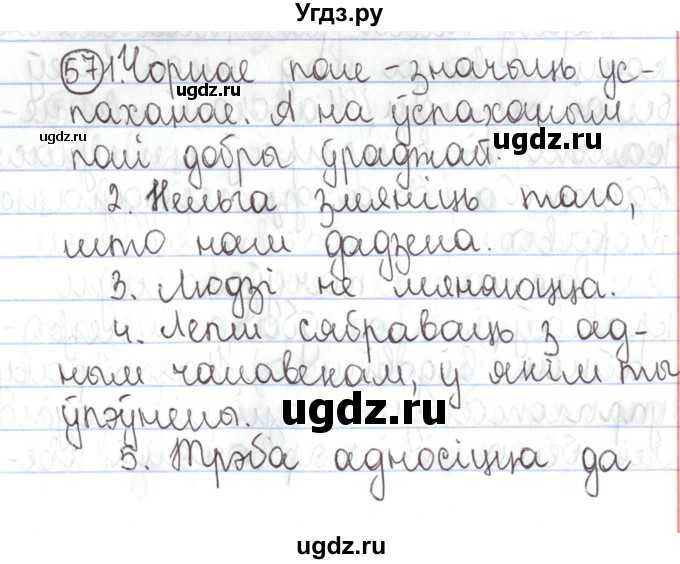 Угдз.ру
57 1. Чорнае поле - значыць ус-
ugdz.ru
паханае. А на ўспаханым
ugdz.ru
ugdz.ru
полі добры ўраджай.
2. Нельга змяніць таго,
што нам дадзена.
3. Людзі не мяняюцца.
4. Лепш сябраваць з ад-
ным чалавекам, у якім ты
ўпэўнены.
ugdz.ru
5. Трэба адносіцца да
ugdz.ru